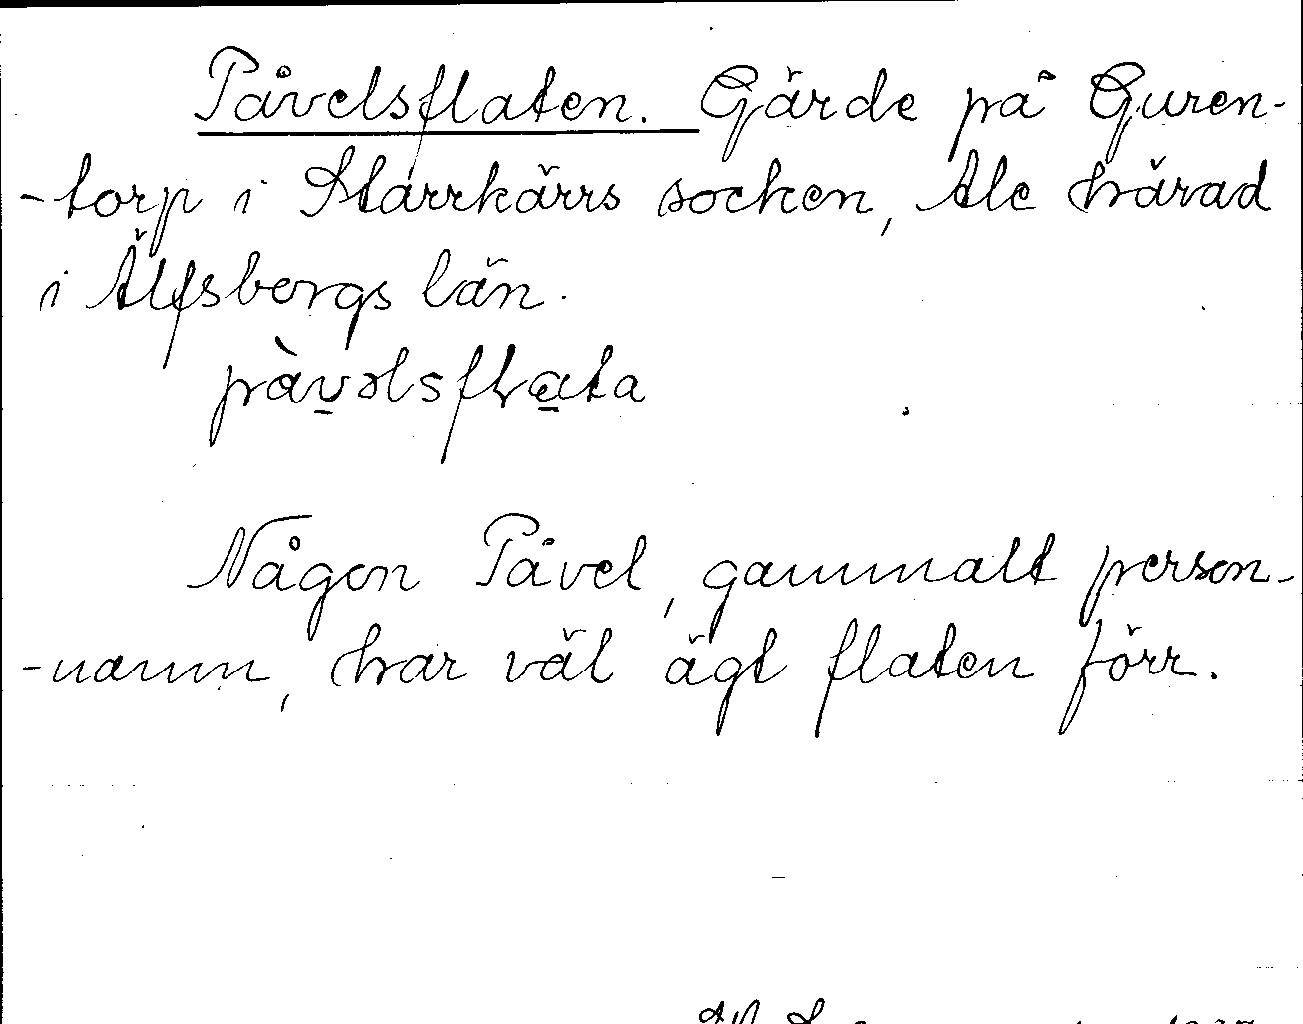 Påvelsflaten. Gärde på Guren-
-torp i Starrkärrs socken, Ale härad
i Älfsborgs län.
pàvəlsflata
Någon Påvel, gammalt person-
-namn, har väl ägt flaten förr.